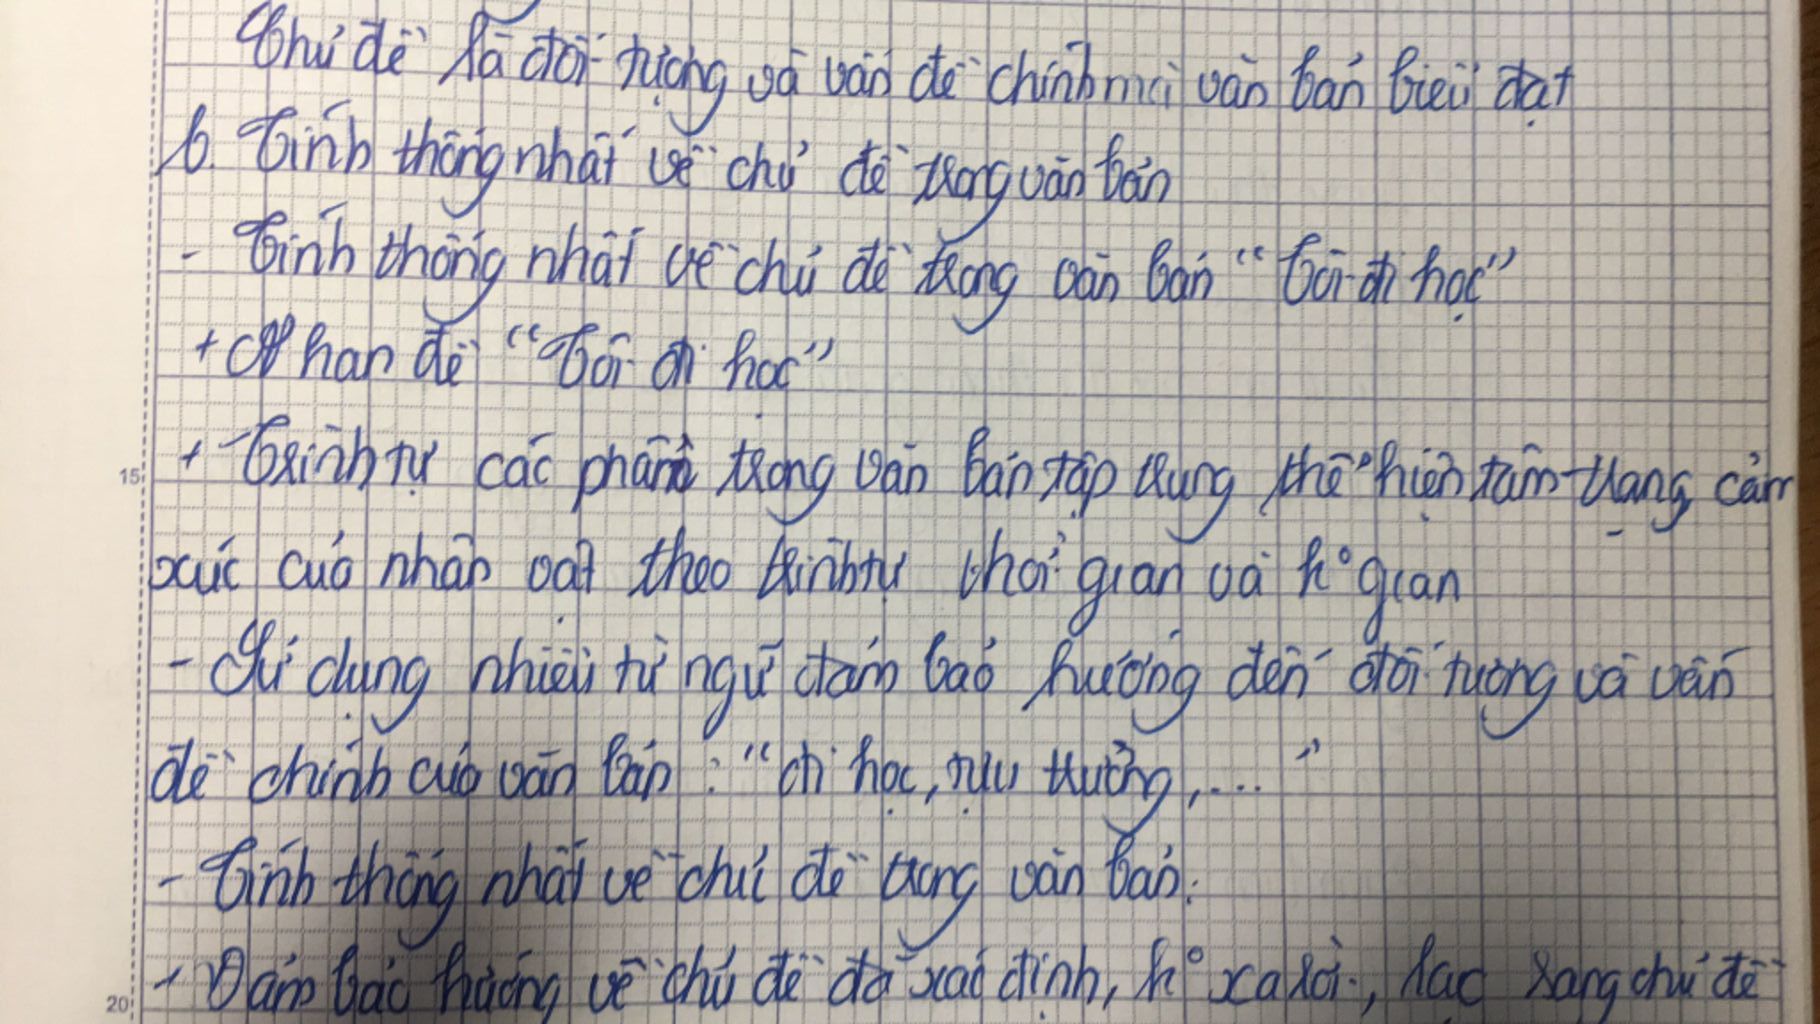 Chủ đề là đối tượng và vấn đề chính mà văn bản biểu đạt
b. Tính thống nhất về chủ đề trong văn bản
- Tính thống nhất về chủ đề trong văn bản "Tôi đi học"
+ Nhan đề "Tôi đi học"
+ Trình tự các phần trong văn bản tập trung thể hiện tâm trạng cảm
xúc của nhân vật theo trình tự thời gian và k° gian
15
- Sử dụng nhiều từ ngữ đảm bảo hướng đến đối tượng và vấn
đề chính của văn bản : "đi học, tựu trường,..."
- Tính thống nhất về chủ đề trong văn bản.
+ Đảm bảo hướng về chủ đề đã xác định, k° xa rời, lạc sang chủ đề
20